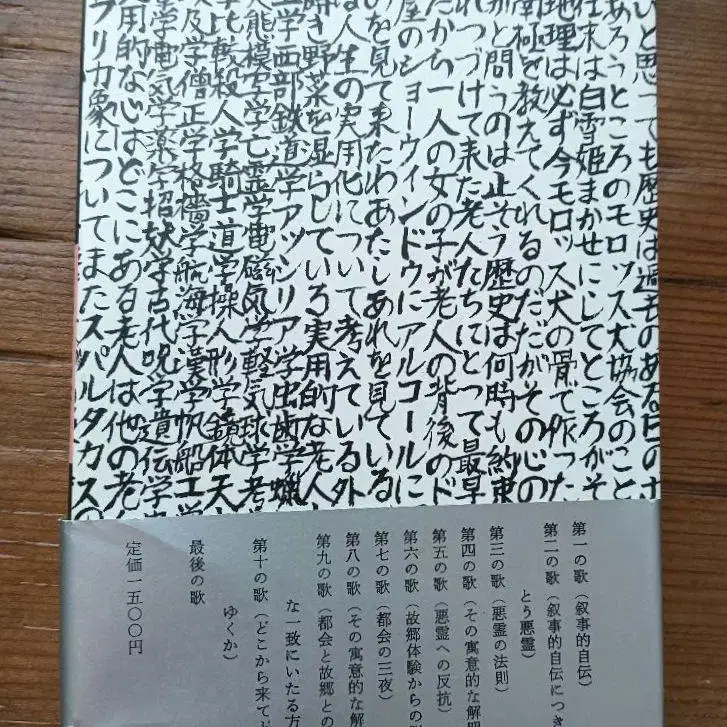 いと思っても歴史は過去のある日の
あろうところのモロッス犬協会のこと
末は白雪姫まかせにしてところがそ
地理は必ず今モロッス犬の骨で作った
南極を教えてくれるのだだがその心の
かと問うのは止そう歴史は何時も約束
れつづけて来た老人たちにとって最早
だから一人の女の子が老人の背後のド
屋のショーウインドウにアルコールに
のを見て来たわあたしあれを見ている
は人生の実用化について考えている外
き野菜を湿らしている実用的な老人
工学西部鉄道学アッシリア学虫歯学蠟
学亡霊学電磁気学軽気球学考
学比較殺人学騎士道学操人形学鏡体天
及学僧正学格檣学航海学漢学帆船工学
学電気学薬学招妖学古代呪学遺伝学
用的な心はどこにある老人は他の老人
フリカ象についてまたスパルタカスの
第一の歌（叙事的自伝）
第二の歌（叙事的自伝につき
とう悪霊）
第三の歌（悪霊の法則）
第四の歌（その寓意的な解明
第五の歌（悪霊への反抗）
第六の歌（故郷体験からの
第七の歌（都会の三夜）
第八の歌（その寓意的な解
第九の歌（都会と故郷との
な一致にいたる方
第十の歌（どこから来てど
ゆくか）
最後の歌
定価一五〇〇円